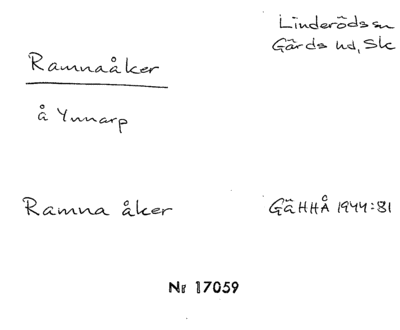 Linderöds sn
Gärds hd, Sk
Ramnaåker
å Ynnarp
Ramna åker
GäHHÅ 1944:81
Nr 17059